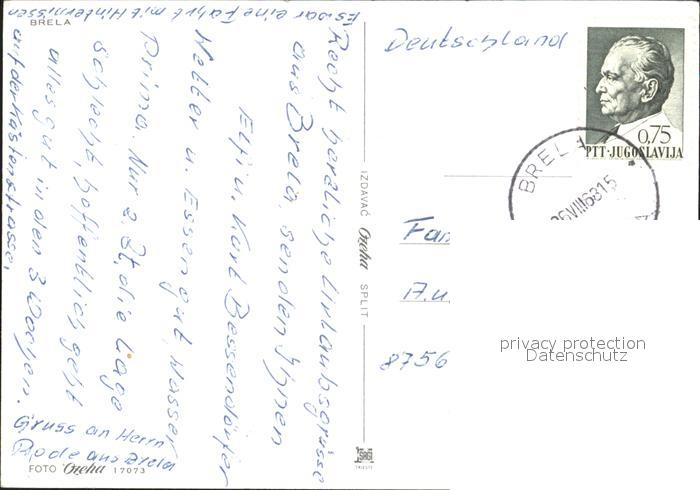 BRELA
Es war eine Fahrt mit Hinternissen
Recht herzliche Urlaubsgrüsse
aus Brela, senden Ihnen
Elfi u. Kurt Bessendörfer
Wetter u. Essen gut, Wasser
Prima. Nur 2 St. die Lage
schlecht, hoffentlich geht
alles gut in den 3 Wochen.
auf der Küstenstrasse.
Gruss an Herrn
Rode aus Brela
FOTO Ozeha 17073
IZDAVAČ Ozeha SPLIT
Deutschland
0,75
PTT·JUGOSLAVIJA
BREL
26VIII6815
Fam
A.u.
8756
privacy protection
Datenschutz